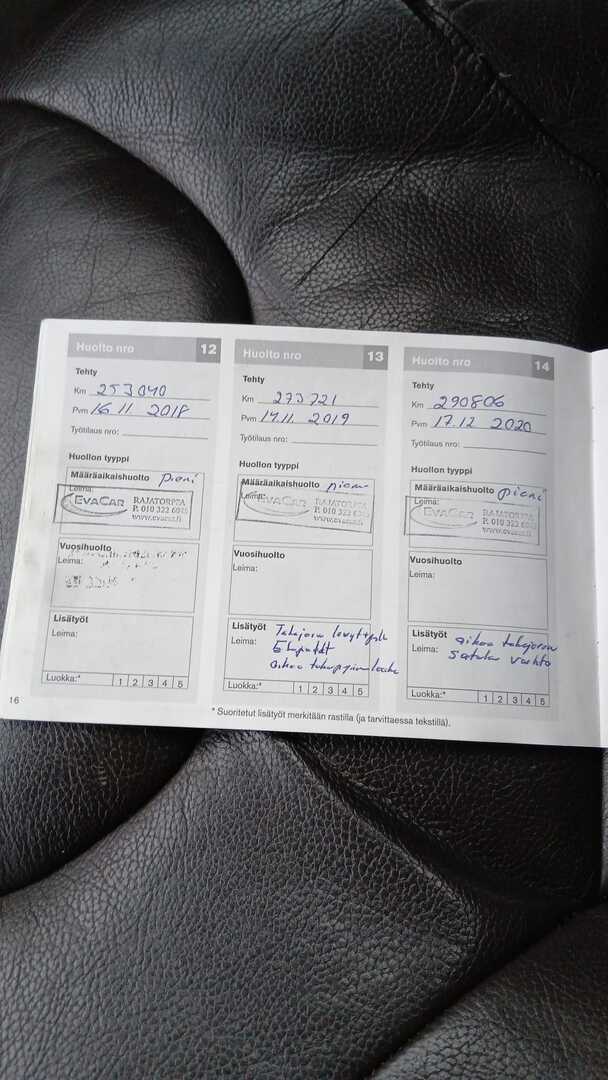 Huolto nro 12
Tehty
Km 253040
Pvm 16.11 2018
Työtilaus nro:
Huollon tyyppi
Määräaikaishuolto pieni
Leima:
EVACAR RAJATORPTA
P. 010 322 6010
www.evacar.fi
Vuosihuolto
Leima:
Lisätyöt
Leima:
Luokka:* 1 2 3 4 5
16
Huolto nro 13
Tehty
Km 273721
Pvm 14.11. 2019
Työtilaus nro:
Huollon tyyppi
Määräaikaishuolto pieni
Leima:
EVACAR RAJATORPTA
P. 010 322
www.evacar.fi
Vuosihuolto
Leima:
Lisätyöt Takajarru levyt+palat
Leima: Etupalat
oikea
Luokka:* 1 2 3 4 5
Huolto nro 14
Tehty
Km 290806
Pvm 17.12 2020
Työtilaus nro:
Huollon tyyppi
Määräaikaishuolto pieni
Leima:
EVACAR RAJATORPTA
P. 010 322
www.evacar.fi
Vuosihuolto
Leima:
Lisätyöt oikea takajarru
Leima: satula vaihto
Luokka:* 1 2 3 4 5
* Suoritetut lisätyöt merkitään rastilla (ja tarvittaessa tekstillä).